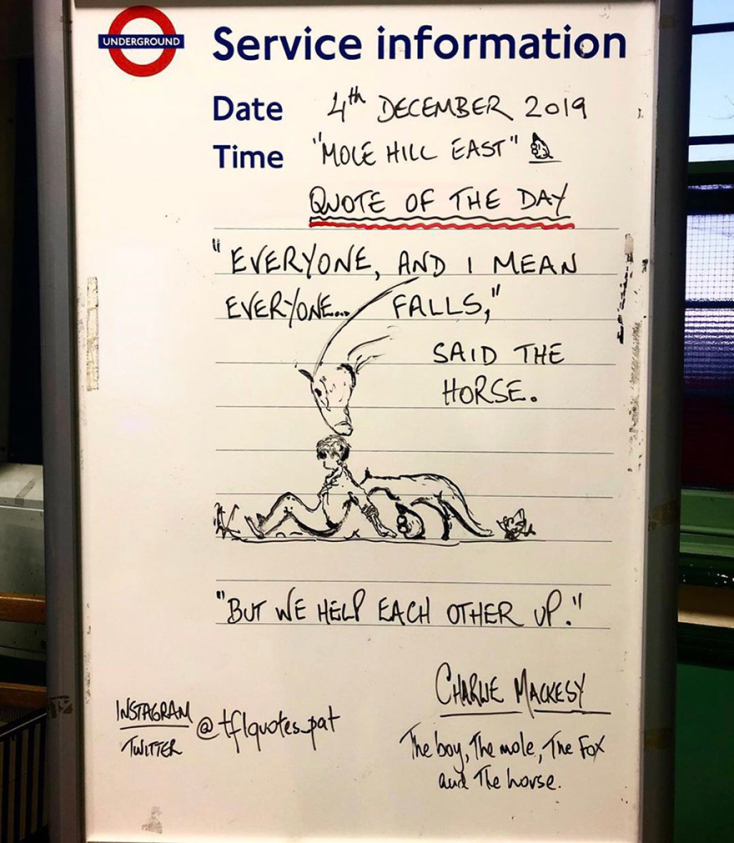 UNDERGROUND
Service information
Date 4th DECEMBER 2019
Time "MOLE HILL EAST"
QUOTE OF THE DAY
"EVERYONE, AND I MEAN
EVERYONE... FALLS,"
SAID THE
HORSE.
"BUT WE HELP EACH OTHER UP."
CHARLIE MACKESY
The boy, The mole, The Fox
and The horse.
INSTAGRAM
TWITTER
@tflquotes_pat